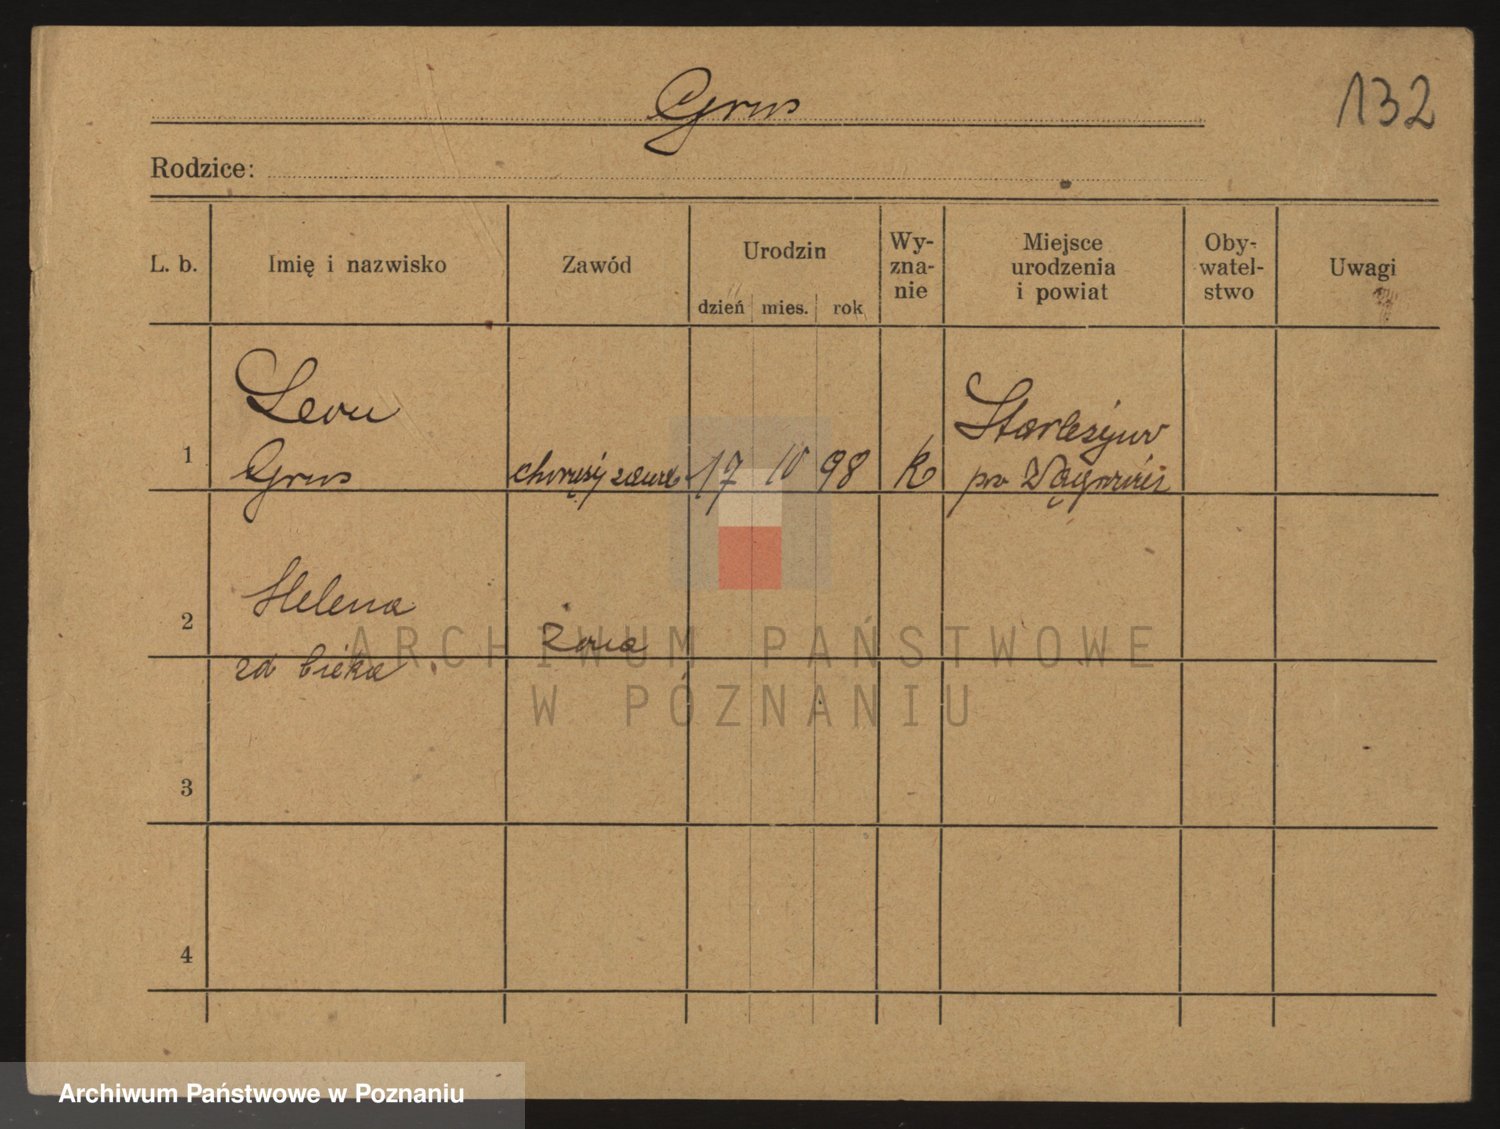 Grus
132
Rodzice:
L. b. Imię i nazwisko Zawód Urodzin dzień mies. rok Wy-zna-nie Miejsce urodzenia i powiat Oby-watel-stwo Uwagi
Leon
1 Grus chorąży 17 IV 98 K
pow Wągrówiec
Helena
2 żona
zd
3
4
ARCHIWUM PAŃSTWOWE
W POZNANIU
Archiwum Państwowe w Poznaniu